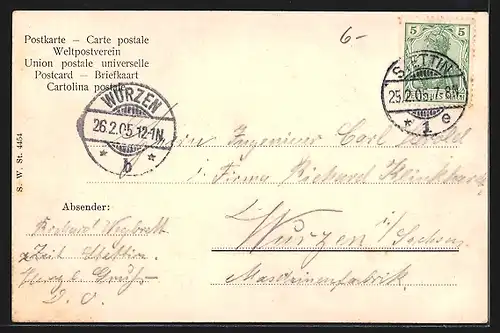 Postkarte – Carte postale
Weltpostverein
Union postale universelle
Postcard – Briefkaart
Cartolina postale
6-
5 5
STETTIN
25.2.05.7-8N.
* 1 e
WURZEN
26.2.05.12-1N.
* b *
S. W. St. 4454
Herrn Ingenieur Carl
i/ Firma Richard Klinkhardt
Wurzen i/Sachsen
Maschinenfabrik
Absender:
Richard
Zeit Stettin
Herzl. Gruß
D. O.